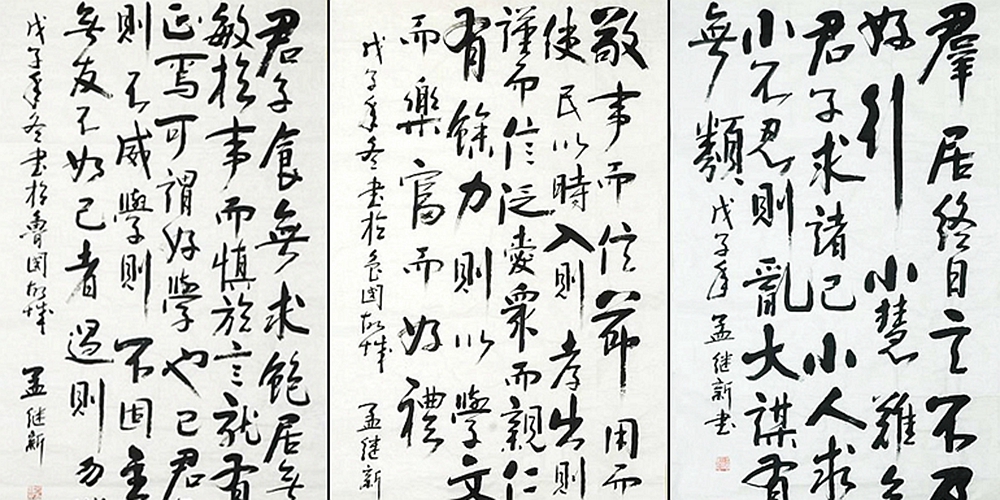 君子食無求飽居無
敏於事而慎於言就有
正焉可謂好學也已君
則不威學則不固主
無友不如己者過則勿
戊子年冬書於魯國故城 孟继新
敬事而信節用而
使民以時入則孝出則
謹而信泛愛衆而親仁
有餘力則以學文
而樂富而好禮
戊子年冬書於魯國故城 孟继新
羣居終日言不及
好行小慧難
君子求諸己小人求
小不忍則亂大謀有
無類 戊子年 孟继新書